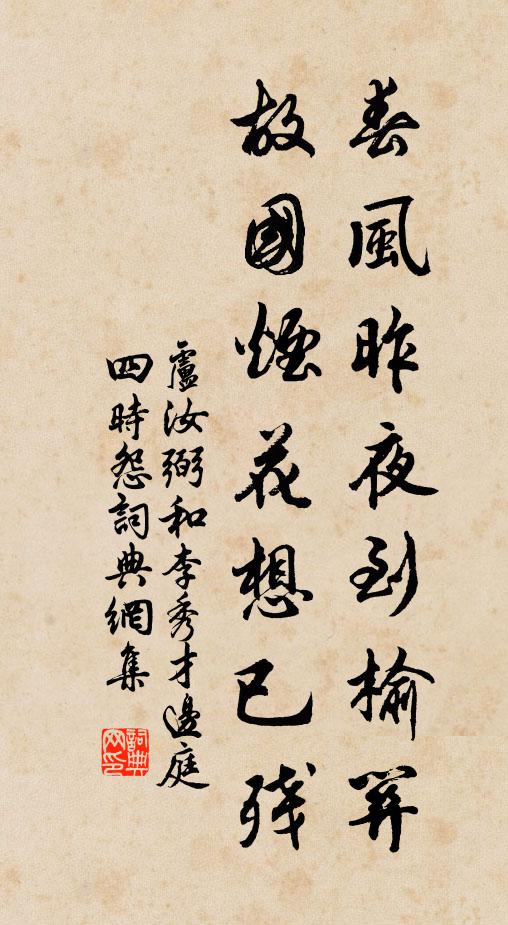 春風昨夜到榆關
故國煙花想已殘
盧汝弼和李秀才邊庭
四時怨詞典網集
詞典網印